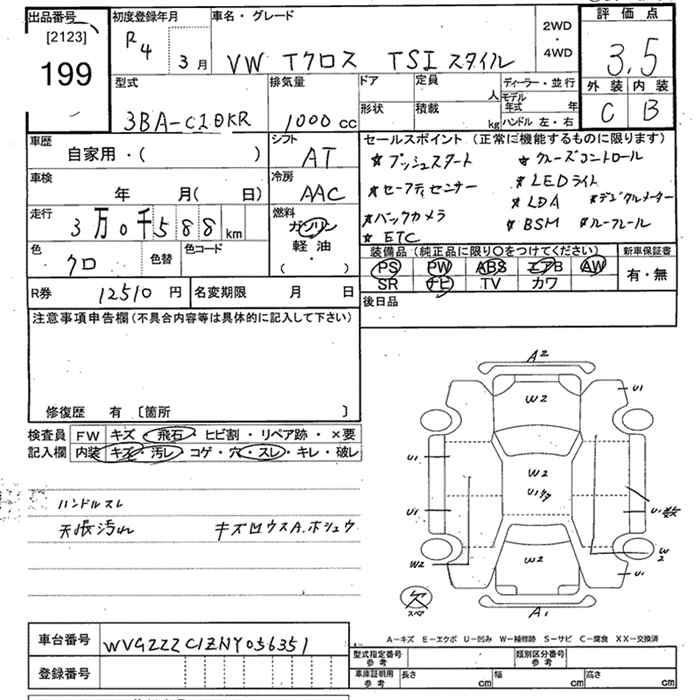 出品番号
[2123]
199
初度登録年月
R4
3月
車名・グレード
VW Tクロス TSI スタイル
2WD
・
4WD
評価点
3.5
外装 内装
C B
型式
3BA-C1DKR
排気量
1000 cc
ドア
定員
人
形状
積載
kg
ディーラー・並行
モデル年式 年
ハンドル 左・右
車歴
自家用・( )
シフト
AT
車検
年 月( 日)
冷房
AAC
走行
3万0千588 km
燃料
ガソリン
軽油
・
( )
色
クロ
色替
色コード
セールスポイント(正常に機能するものに限ります)
★プッシュスタート ★クルーズコントロール
★セーフティセンサー ★LEDライト
★LDA ★デジタルメーター
★バックカメラ ★BSM ★ルーフレール
★ETC
装備品(純正品に限り○をつけてください)
PS PW ABS エアB AW
SR ナビ TV カワ
新車保証書
有・無
R券 12510円
名変期限 月 日
後日品
注意事項申告欄(不具合内容等は具体的に記入して下さい)
修復歴 有 〔箇所 〕
検査員
記入欄
FW キズ・飛石・ヒビ割・リペア跡・×要
内装 キズ・汚レ・コゲ・穴・スレ・キレ・破レ
ハンドルスレ
天張汚れ キズ凹ウスA.ホシュウ
A2
W2
U1
U1
W2
U1
U1
W2
W2
U1
欠
スペア
A1
A-キズ E-エクボ U-凹み W-補修跡 S-サビ C-腐食 XX-交換済
車台番号
WVGZZZC1ZNY056351
登録番号
型式指定番号
参考
類別区分番号
参考
車庫証明用
参考
長さ cm
幅 cm
高さ cm